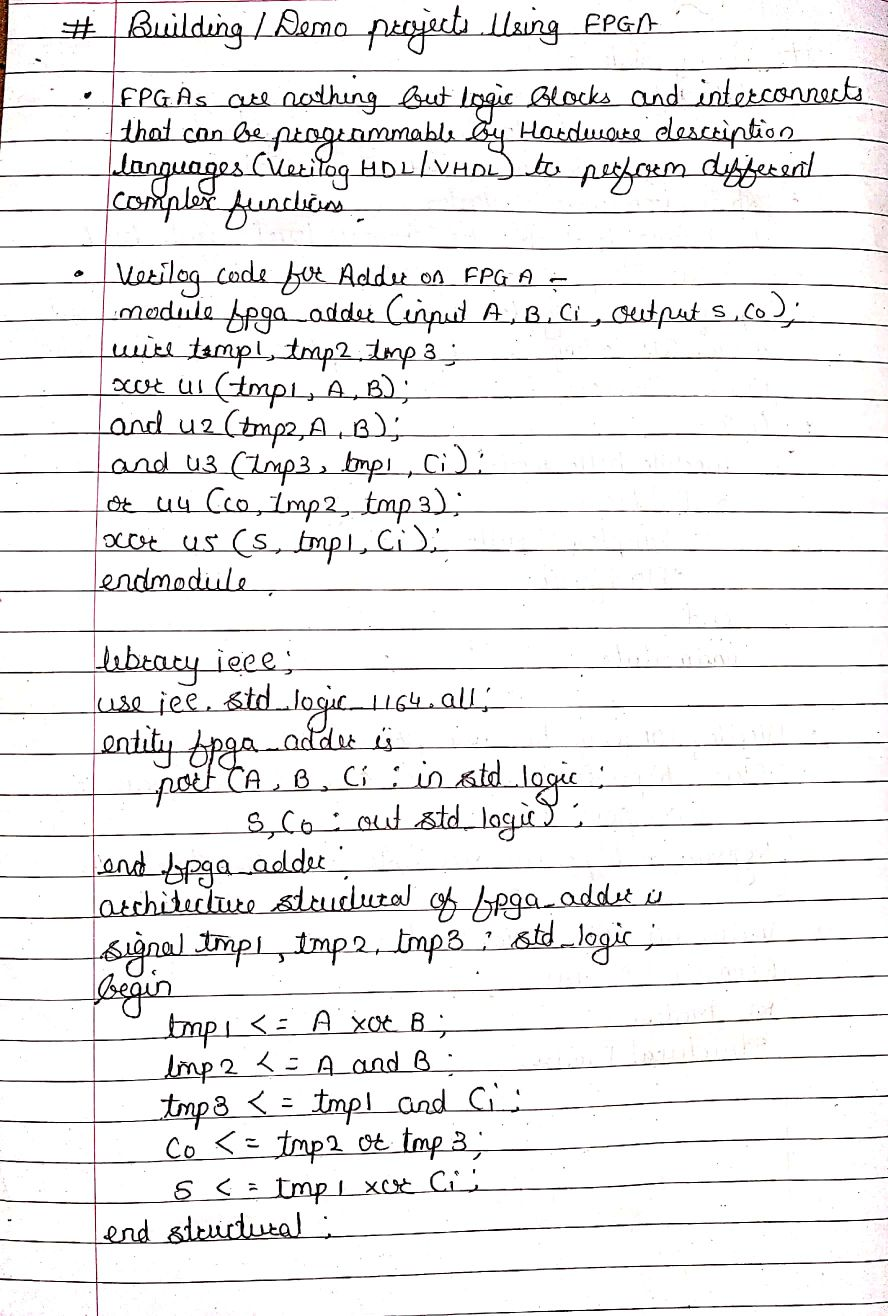 # Building / Demo projects Using FPGA
• FPGAs are nothing but logic blocks and interconnects
that can be programmable by Hardware description
languages (Verilog HDL / VHDL) to perform different
complex functions.
• Verilog code for Adder on FPGA -
module fpga_adder (input A, B, Ci, output S, Co);
wire temp1, tmp2, tmp3;
xor u1 (tmp1, A, B);
and u2 (tmp2, A, B);
and u3 (tmp3, tmp1, Ci);
or u4 (co, tmp2, tmp3);
xor u5 (S, tmp1, Ci);
endmodule
library ieee;
use iee. std_logic_1164.all;
entity fpga_adder is
port (A, B, Ci : in std_logic;
S, Co : out std_logic);
end fpga_adder;
architecture structural of fpga_adder is
signal tmp1, tmp2, tmp3 : std_logic;
begin
tmp1 <= A xor B;
tmp2 <= A and B;
tmp3 <= tmp1 and Ci;
Co <= tmp2 or tmp3;
S <= tmp1 xor Ci;
end structural;